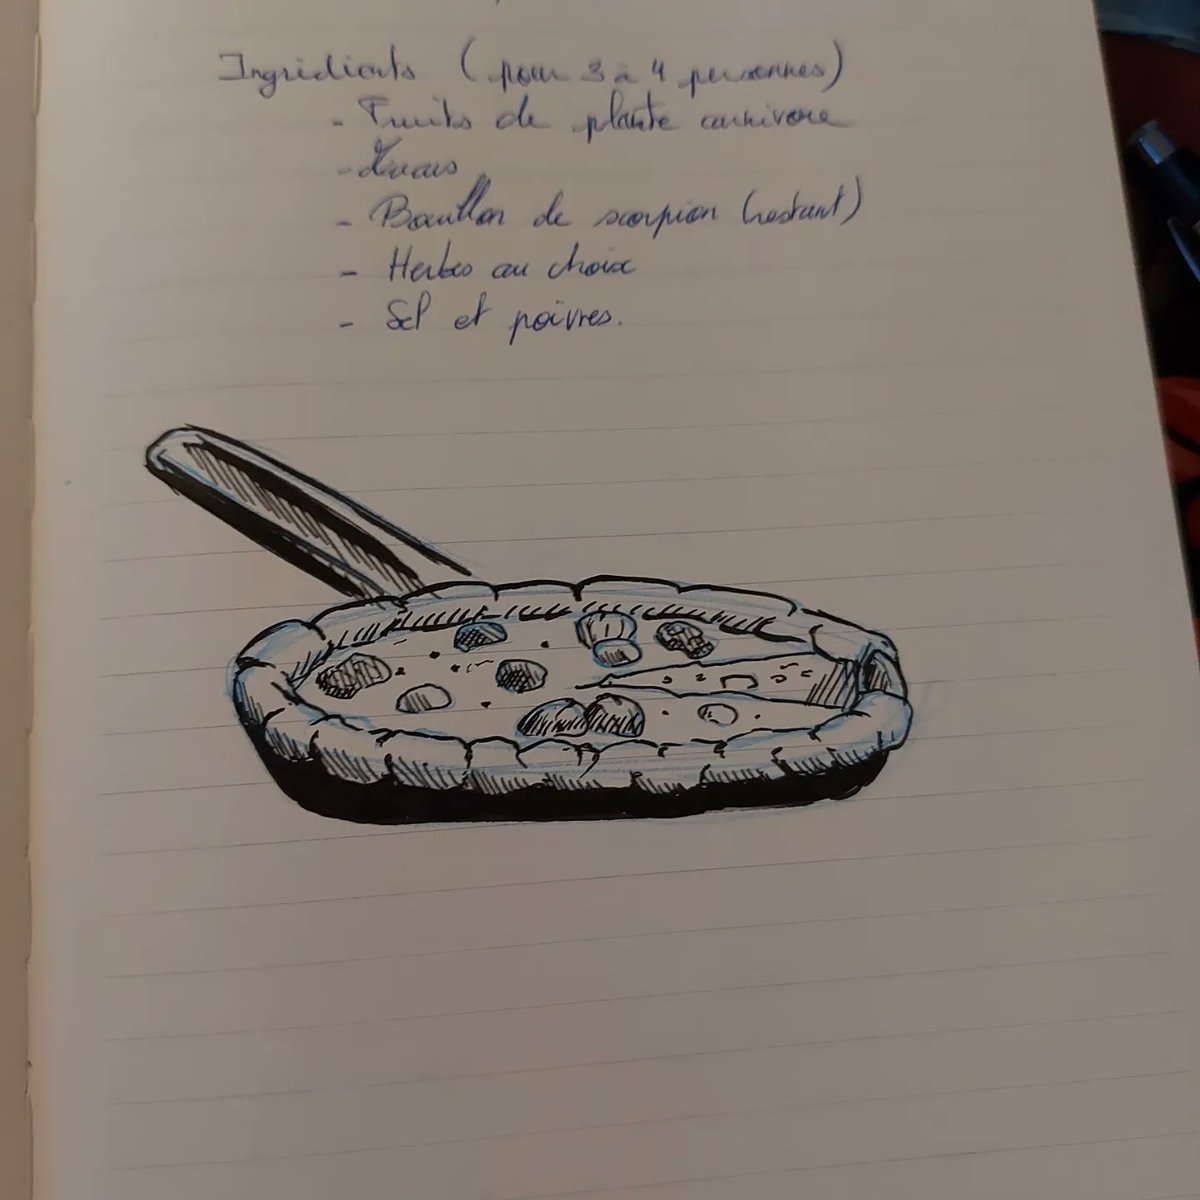 Ingrédients (pour 3 à 4 personnes)
- Fruits de plante carnivore
-
- Bouillon de scorpion (restant)
- Herbes au choix
- Sel et poivres.